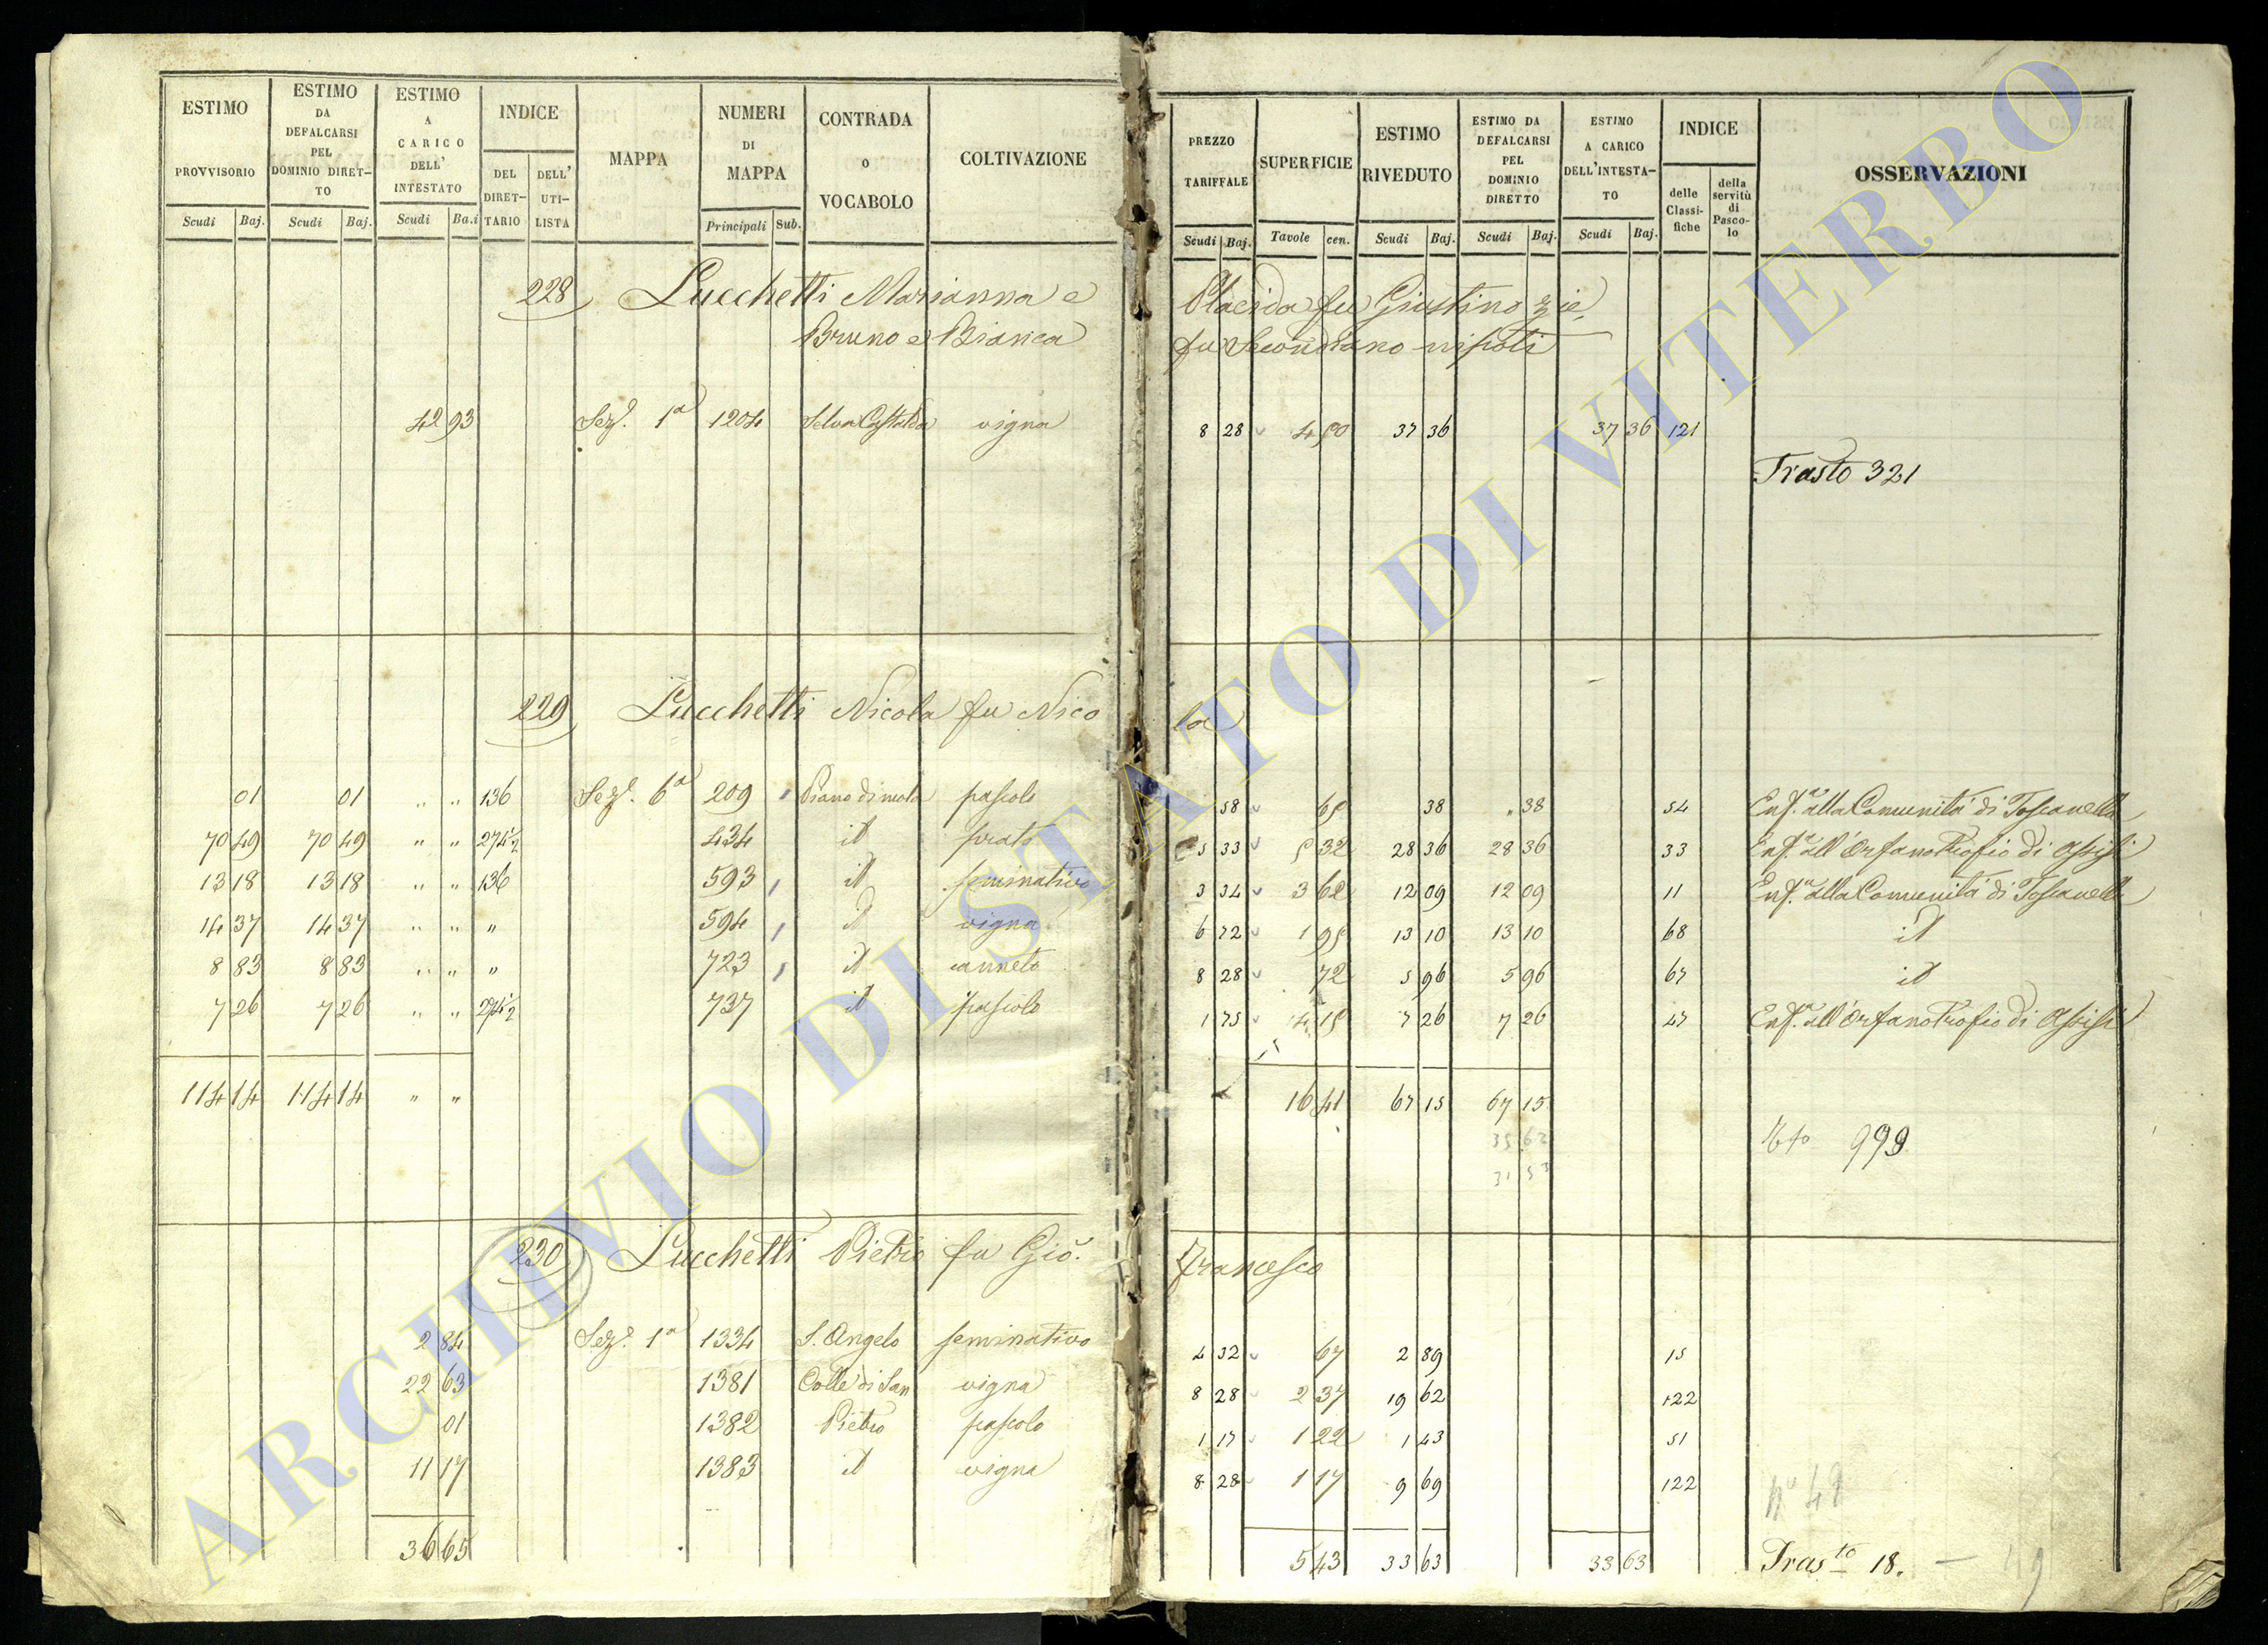 ESTIMO PROVVISORIO | ESTIMO DA DEFALCARSI PEL DOMINIO DIRET-TO | ESTIMO A CARICO DELL' INTESTATO | INDICE | MAPPA | NUMERI DI MAPPA | CONTRADA O VOCABOLO | COLTIVAZIONE | PREZZO TARIFFALE | SUPERFICIE | ESTIMO RIVEDUTO | ESTIMO DA DEFALCARSI PEL DOMINIO DIRETTO | ESTIMO A CARICO DELL'INTESTA-TO | INDICE | OSSERVAZIONI
Scudi Baj. | Scudi Baj. | Scudi Ba.i | DEL DIRET-TARIO | DELL' UTI-LISTA | Principali | Sub. | Scudi Baj. | Tavole cen. | Scudi Baj. | Scudi Baj. | Scudi Baj. | delle Classi-fiche | della servitù di Pasco-lo
228 Lucchetti Marianna e Placida fu Giustino zie,
Bruno e Bianca fu Secondiano nipoti
42 93 Sez. 1a 1204 Selva Castalda vigna 8 28 4 50 37 36 37 36 121
Trasto 321
229 Lucchetti Nicola fu Nico la
01 01 " " 136 Seze. 6a 209 Piano di mola pascolo 58 65 38 " 38 54 Enf.a alla Comunità di Toscanella
70 49 70 49 " " 274½ 434 id prato 5 33 5 32 28 36 28 36 33 Enf.a all'Orfanotrofio di Assisi
13 18 13 18 " " 136 593 id seminativo 3 34 3 62 12 09 12 09 11 Enf.a alla Comunità di Toscanella
14 37 14 37 " " " 594 id vigna 6 72 1 95 13 10 13 10 68 id
8 83 8 83 " " " 723 id canneto 8 28 72 5 96 5 96 67 id
7 26 7 26 " " 274½ 737 id pascolo 1 75 4 15 7 26 7 26 47 Enf.a all'Orfanotrofio di Assisi
114 14 114 14 " " 16 41 67 15 67 15
35 62
999
31 53
230 Lucchetti Pietro fu Gio. Francesco
2 84 Seze. 1a 1334 S. Angelo seminativo 4 32 67 2 89 15
22 63 1381 Colle di San vigna 8 28 2 37 19 62 122
01 1382 Pietro pascolo 1 17 1 22 1 43 51
11 17 1383 id vigna 8 28 1 17 9 69 122
No 48
36 65 5 43 33 63 33 63 Trasto 18. — 49
ARCHIVIO DI STATO DI VITERBO